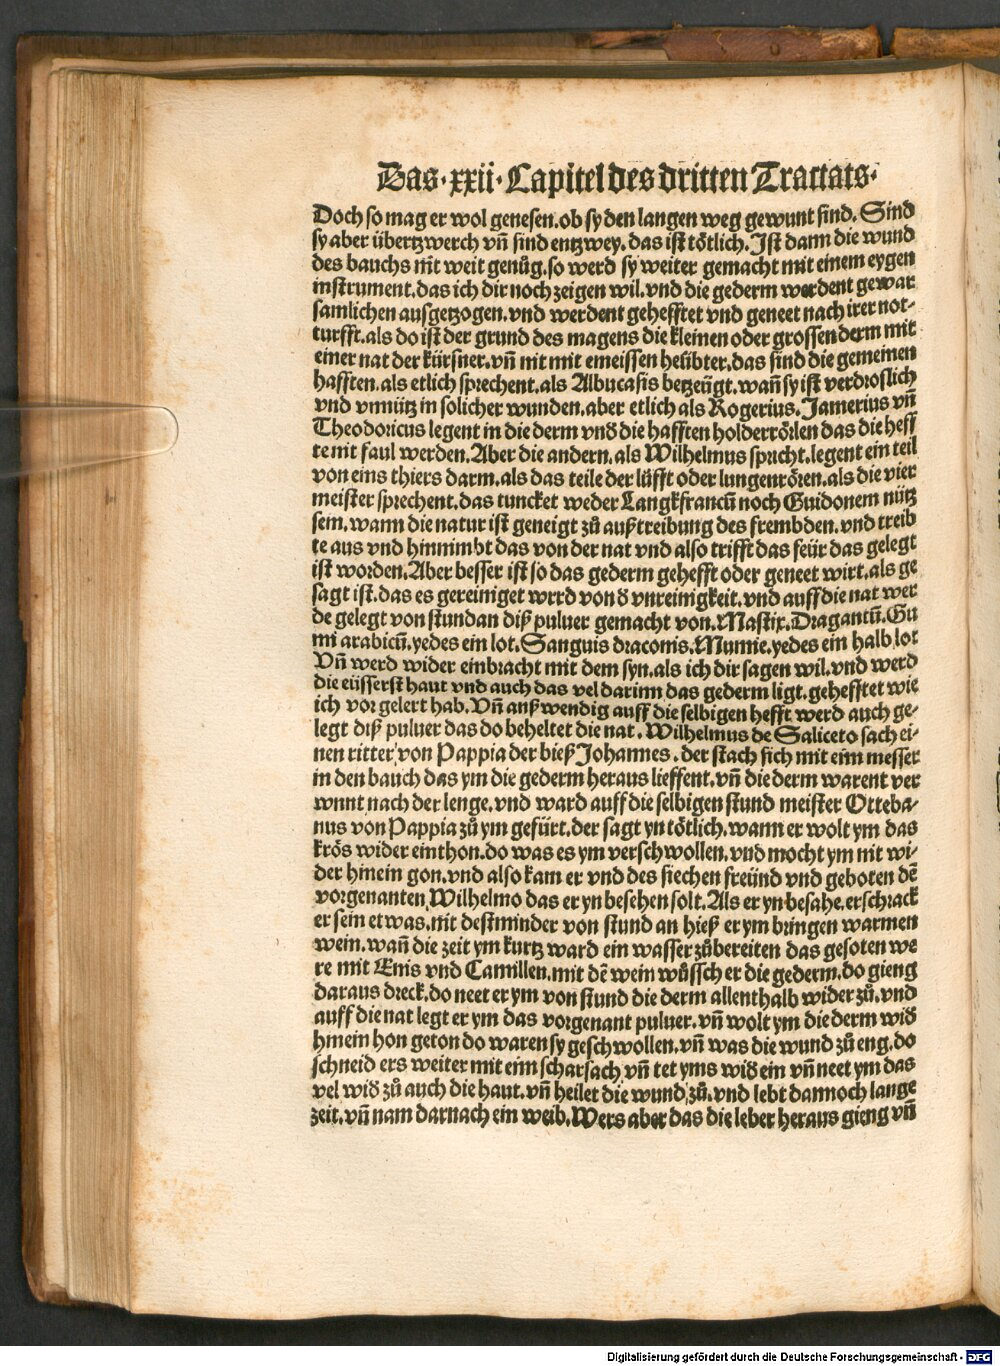 Das·xxii·Capitel des dritten Tractats·
Doch so mag er wol genesen.ob sy den langen weg gewunt sind. Sind
sy aber übertzwerch vñ sind entzwey.das ist tötlich.Ist dann die wund
des bauchs nit weit genůg.so werd sy weiter gemacht mit einem eygen
instrument.das ich dir noch zeigen wil.vnd die gederm werdent gewar
samlichen ausgetzogen.vnd werdent gehefftet vnd geneet nach irer not-
turfft.als do ist der grund des magens die kleinen oder grossen derm mit
einer nat der kürsner.vñ nit mit emeissen heübter.das sind die gemeinen
hafften.als etlich sprechent.als Albucasis betzeügt.wañ sy ist verdroslich
vnd vnnütz in solicher wunden.aber etlich als Rogerius.Jamerius vñ
Theodoricus legent in die derm vnd die hafften holderrörlen das die heff
te nit faul werden.Aber die andern.als Wilhelmus spricht.legent ein teil
von eins thiers darm.als das teile der lüfft oder lungenrören.als die vier
meister sprechent.das tuncket weder Langkfrancū noch Guidonem nütz
sem.wann die natur ist geneigt zů außtreibung des frembden.vnd treib
te aus vnd hinnimbt das von der nat vnd also trifft das feür das gelegt
ist worden.Aber besser ist so das gederm gehefft oder geneet wirt.als ge
sagt ist.das es gereiniget wrrd von d vnreinigkeit.vnd auff die nat wer
de gelegt von stundan diß puluer gemacht von.Mastix.Dragantū.Gu
mi arabicū.yedes ein lot.Sanguis draconis.Mumie.yedes ein halb lot
Vñ werd wider einbracht mit dem syn.als ich dir sagen wil.vnd werd
die eüsserst haut vnd auch das vel darinn das gederm ligt.gehefftet wie
ich vor gelert hab.Vñ außwendig auff die selbigen hefft werd auch ge-
legt diß puluer das do beheltet die nat.Wilhelmus de Saliceto sach ei-
nen ritter von Pappia der hieß Johannes.der stach sich mit eim messer
in den bauch das ym die gederm heraus lieffent.vñ die derm warent ver
wnnt nach der lenge.vnd ward auff die selbigen stund meister Otteba-
nus von Pappia zů ym gefürt.der sagt yn tötlich.wann er wolt ym das
krös wider einthon.do was es ym verschwollen.vnd mocht ym nit wi-
der hinein gon.vnd also kam er vnd des siechen freünd vnd geboten dē
vorgenanten Wilhelmo das er yn besehen solt.Als er yn besahe.erschrack
er sein etwas.nit destminder von stund an hieß er ym bringen warmen
wein.wañ die zeit ym kurtz ward ein wasser zůbereiten das gesoten we
re mit Enis vnd Camillen.mit dē wein wůssch er die gederm.do gieng
daraus dreck.do neet er ym von stund die derm allenthalb wider zů.vnd
auff die nat legt er ym das vorgenant puluer.vñ wolt ym die derm wid
hinein hon geton do waren sy geschwollen.vñ was die wund zů eng.do
schneid ers weiter mit eim scharsach vñ tet yms wid ein vñ neet ym das
vel wid zů auch die haut.vñ heilet die wund zů.vnd lebt dannoch lange
zeit.vñ nam darnach ein weib.Wers aber das die leber heraus gieng vñ
Digitalisierung gefördert durch die Deutsche Forschungsgemeinschaft - DFG